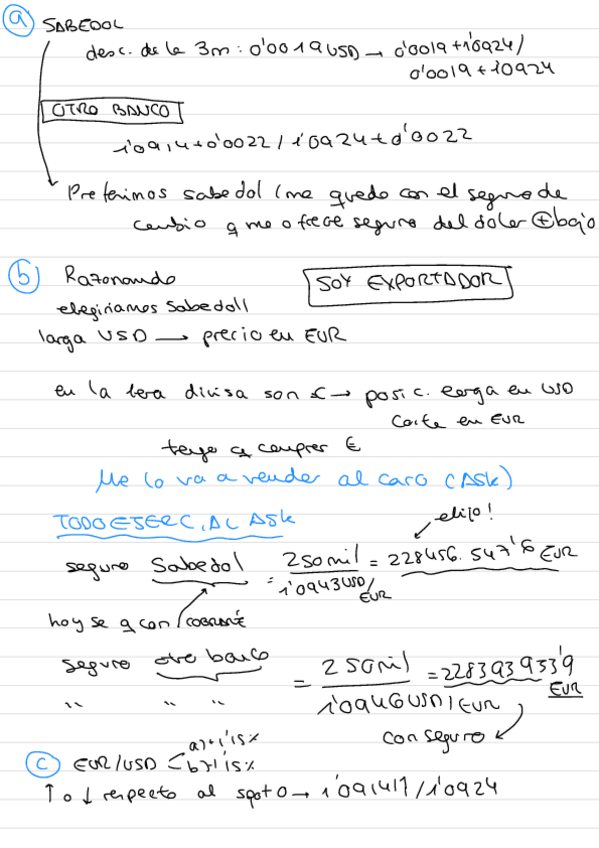 a) SABEDOL
desc. de la 3m: 0'0019 USD → 0'0019 + 1'0924/
0'0019 + 10924
OTRO BANCO
1'0914 + 0'0022 / 1'0924 + 0'0022
Preferimos sabedol (me quedo con el seguro de
cambio q me ofrece seguro del doler ⊕ bajo
b) Razonando
SOY EXPORTADOR
elegiriamos Sabedoll
larga USD → precio en EUR
en la 1era divisa son € → posic. larga en USD
Corta en EUR
tengo q comprar €
Me lo va a vender al caro (Ask)
TODO ESERC, AL ASK
elijo!
seguro Sabedol = 250mil / 1'0943 USD/EUR = 228456.547'6 EUR
hoy se q con / COBRARÉ
seguro otro banco = 250mil / 1'0946 USD/EUR = 2283939339 EUR
" " "
con seguro
c) EUR/USD < a) + 1'15%
b) - 1'15%
↑ o ↓ respecto al spot 0 → 1'091417 / 1'0924